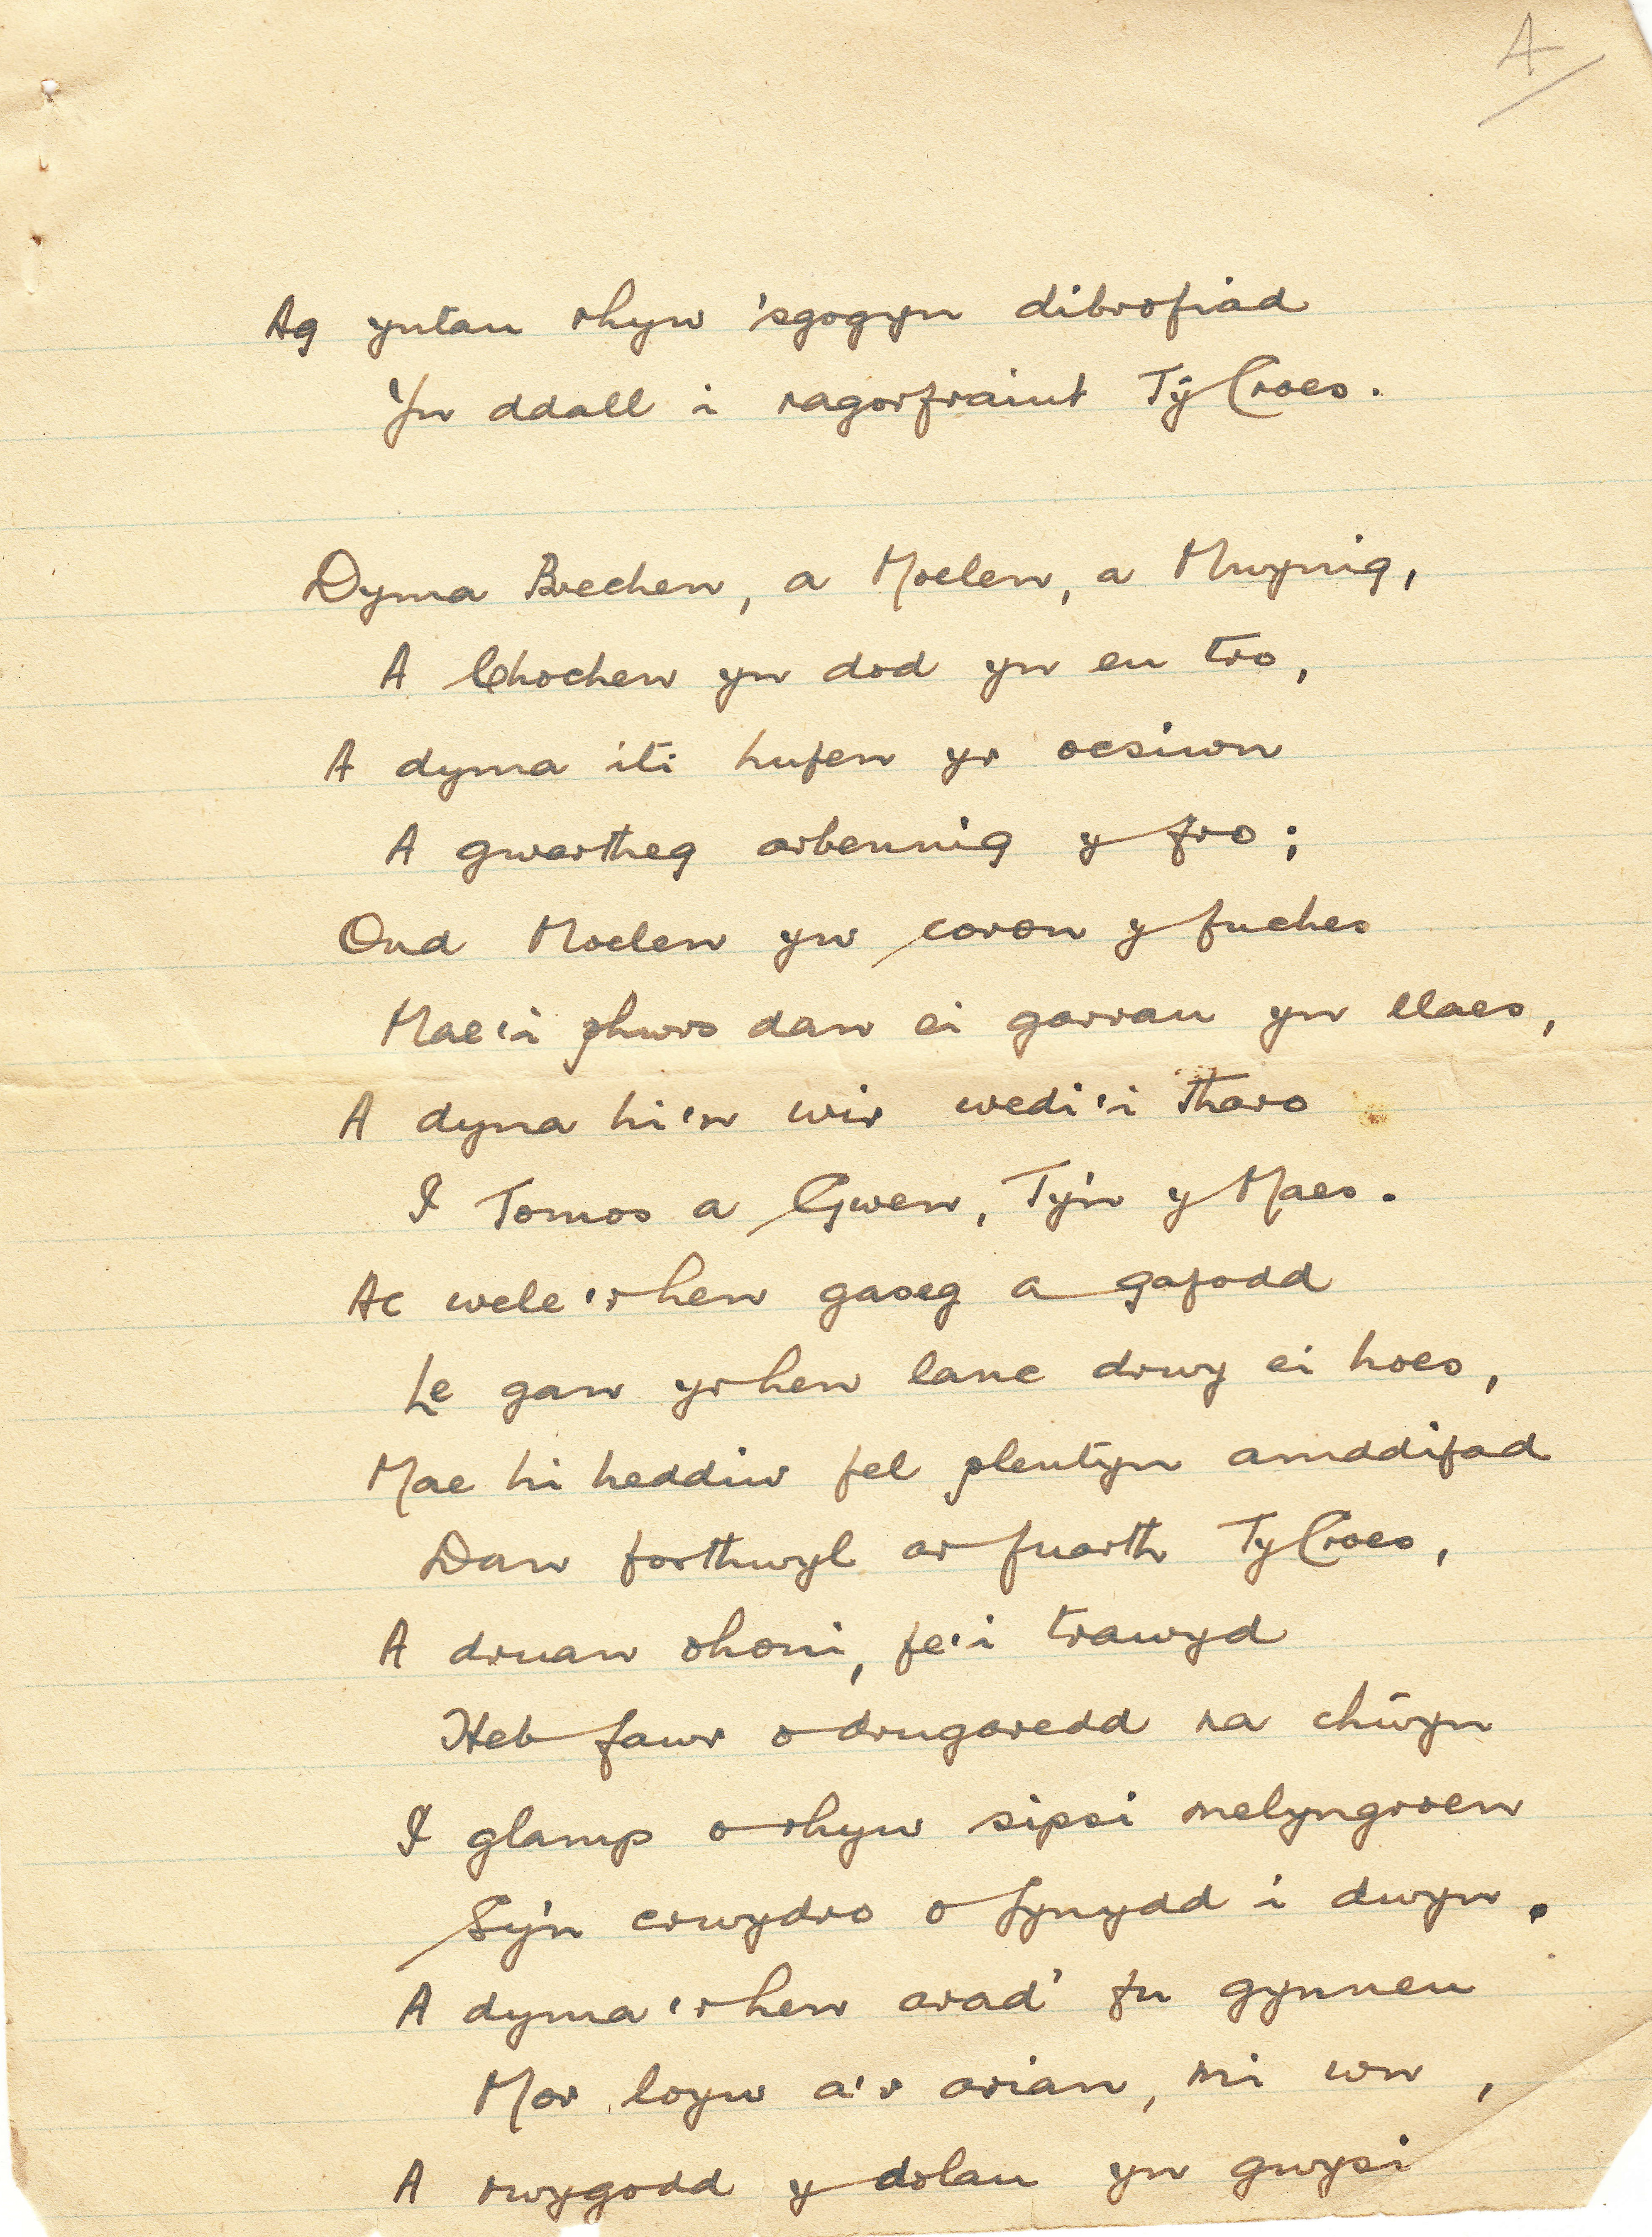 A
Ag yntau rhyw 'sgogyn dibrofiad
Yn ddall i ragorfraint Tŷ Croes.
Dyma Brechen, a Moelen, a Mwynig,
A Chochen yn dod yn eu tro,
A dyma iti hufen yr ocsiwn
A gwartheg arbennig y fro;
Ond Moelen yw coron y fuches
Mae'i phwrs dan ei garrau yn llaes,
A dyna hi'n wir wedi'i tharo
I Tomos a Gwen, Ty'n y Maes.
Ac wele'r hen gaseg a gafodd
Le gan yr hen lanc drwy ei hoes,
Mae hi heddiw fel plentyn amddifad
Dan forthwyl ar fuarth Ty Croes,
A druan ohoni, fe'i trawyd
Heb fawr o drugaredd na chŵyn
I glamp o rhyw sipsi melyngroen
Sy'n crwydro o fynydd i dwyn.
A dyma'r hen arad' fu gynneu
Mor loyw a'r arian, mi wn,
A rwygodd y dolau yn gwysi